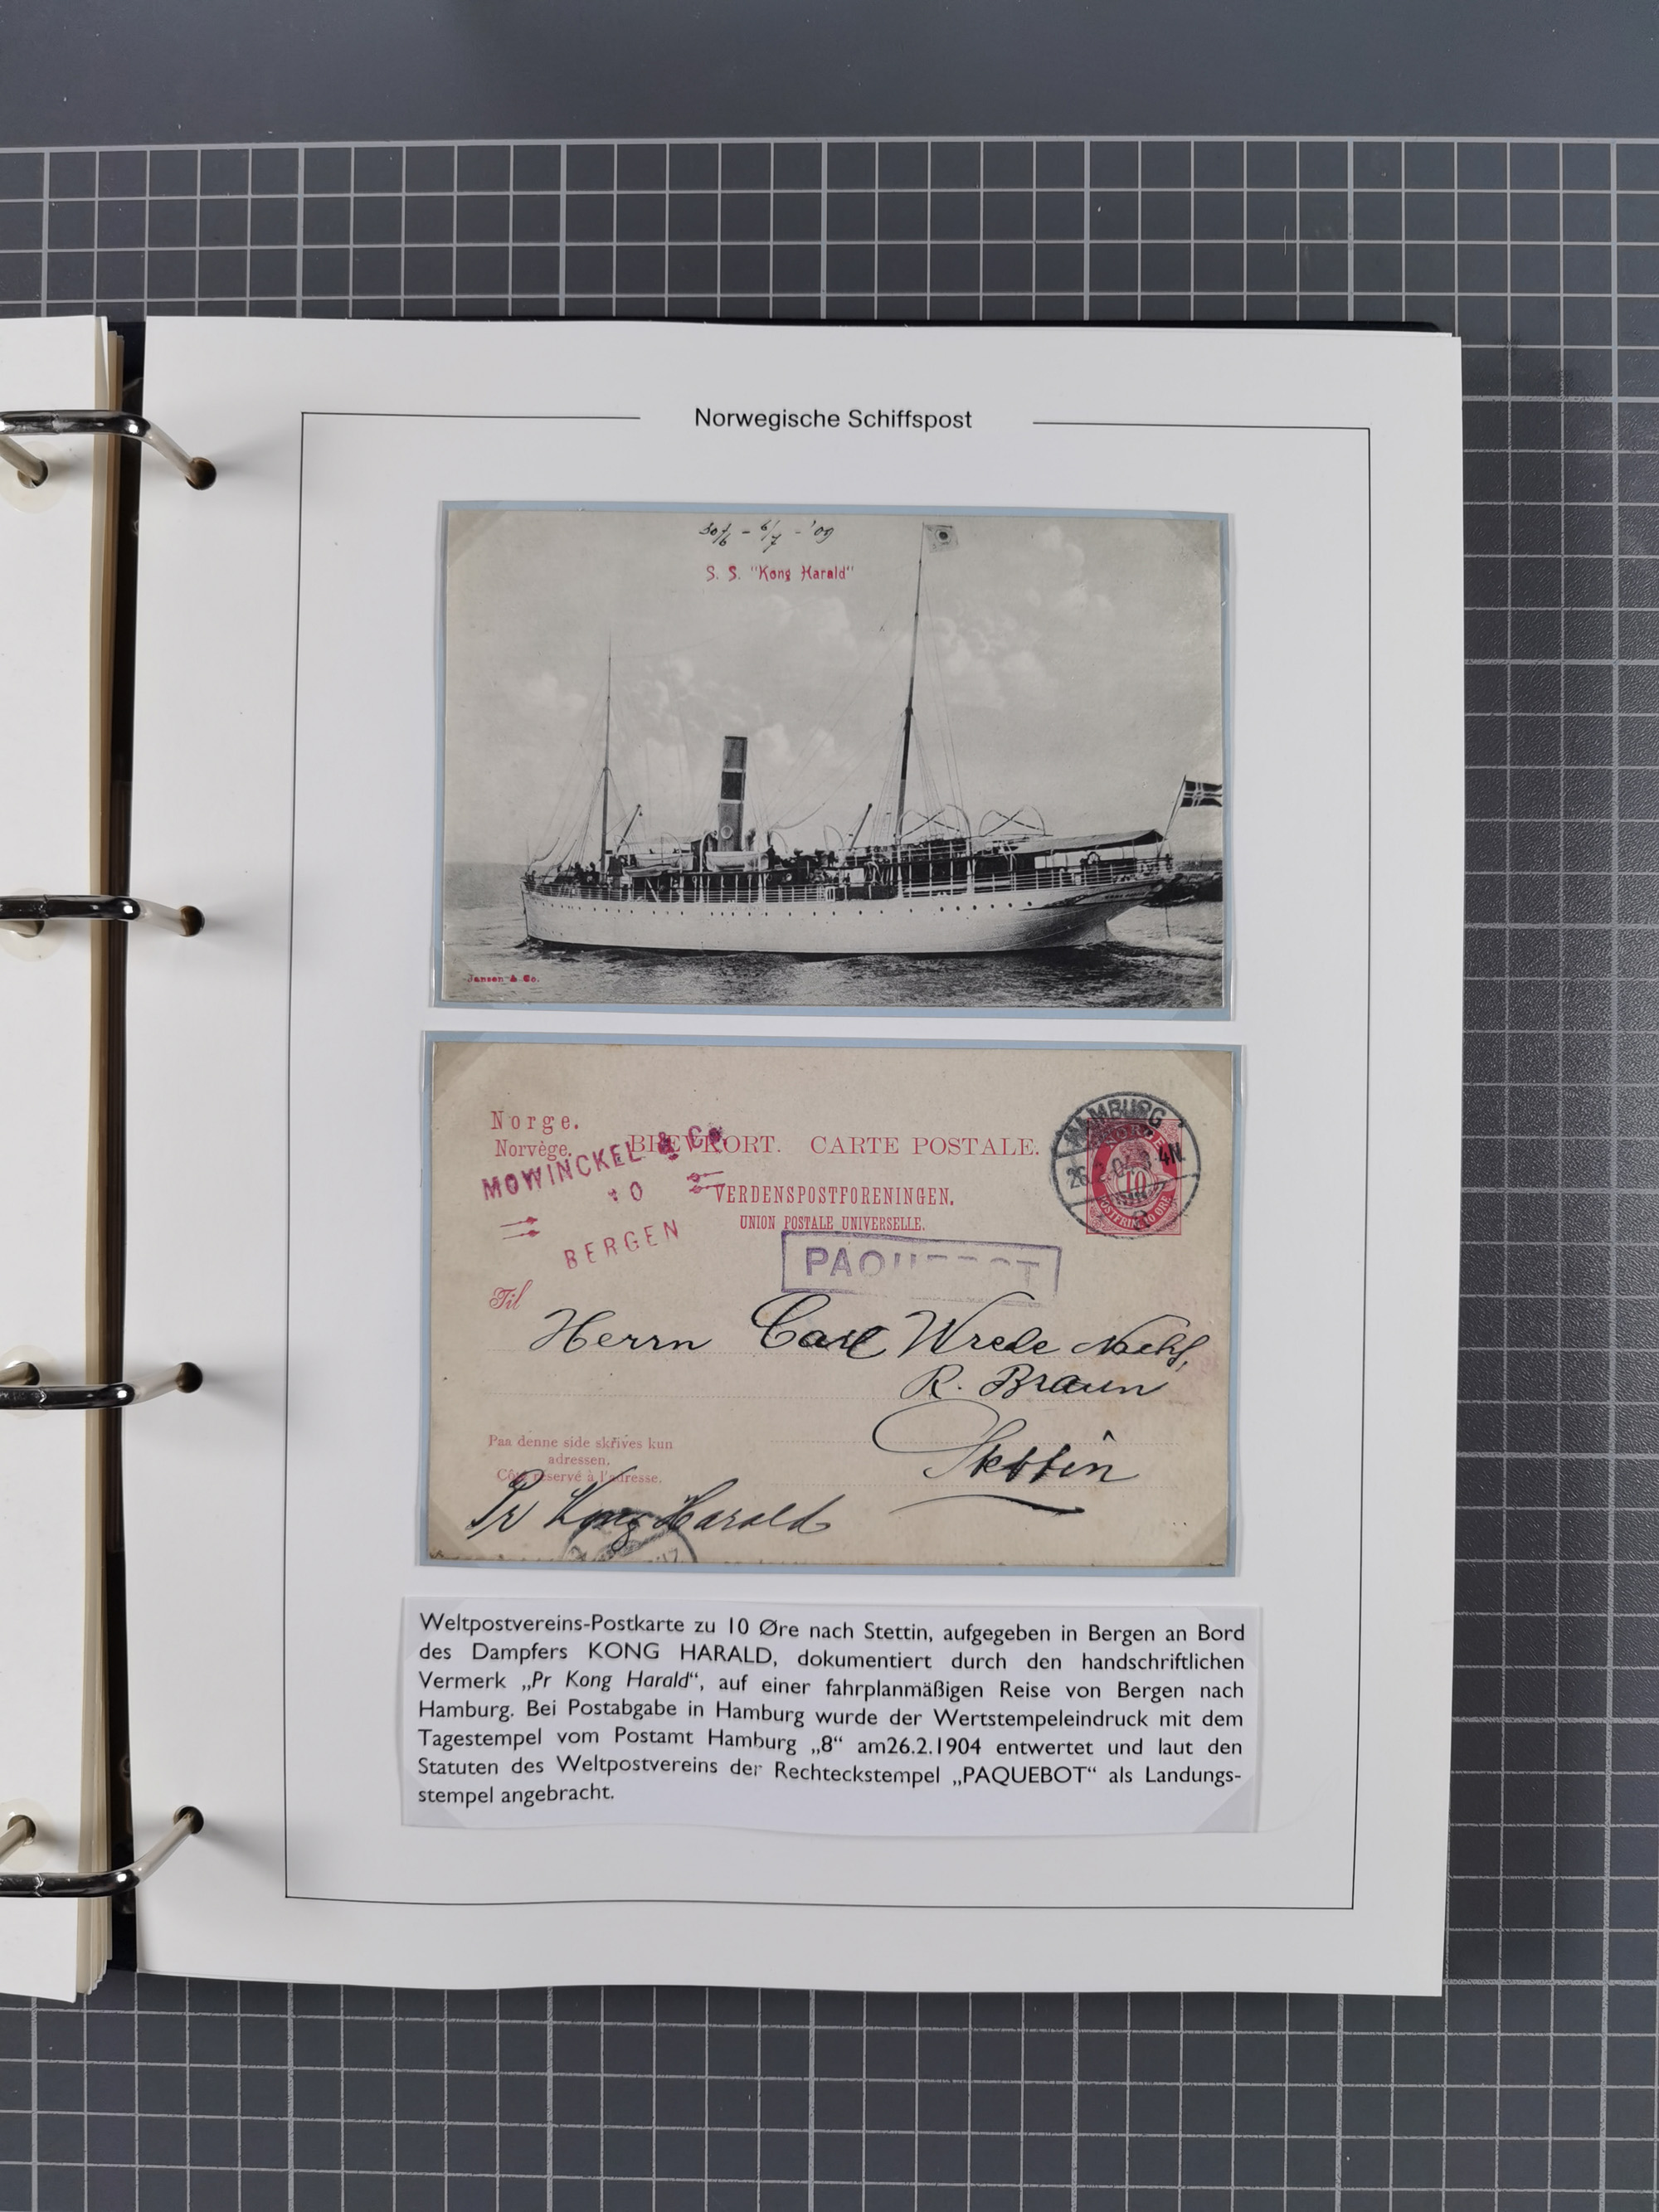 Norwegische Schiffspost
30/6 - 6/7 - '09
S. S. "Kong Harald"
Jansen & Co.
Norge.
Norvège.
BREVKORT. CARTE POSTALE.
MOWINCKEL & Co
BERGEN
VERDENSPOSTFORENINGEN.
UNION POSTALE UNIVERSELLE.
HAMBURG
26.2.04 3-4N.
8
10
POSTFRIM. 10 ØRE
PAQUEBOT
Til
Herrn Carl Wrede Nachf,
R. Braun
Stettin
Paa denne side skrives kun
adressen.
Côté réservé à l'adresse.
Pr Kong Harald
Weltpostvereins-Postkarte zu 10 Øre nach Stettin, aufgegeben in Bergen an Bord
des Dampfers KONG HARALD, dokumentiert durch den handschriftlichen
Vermerk „Pr Kong Harald“, auf einer fahrplanmäßigen Reise von Bergen nach
Hamburg. Bei Postabgabe in Hamburg wurde der Wertstempeleindruck mit dem
Tagestempel vom Postamt Hamburg „8“ am26.2.1904 entwertet und laut den
Statuten des Weltpostvereins der Rechteckstempel „PAQUEBOT“ als Landungs-
stempel angebracht.